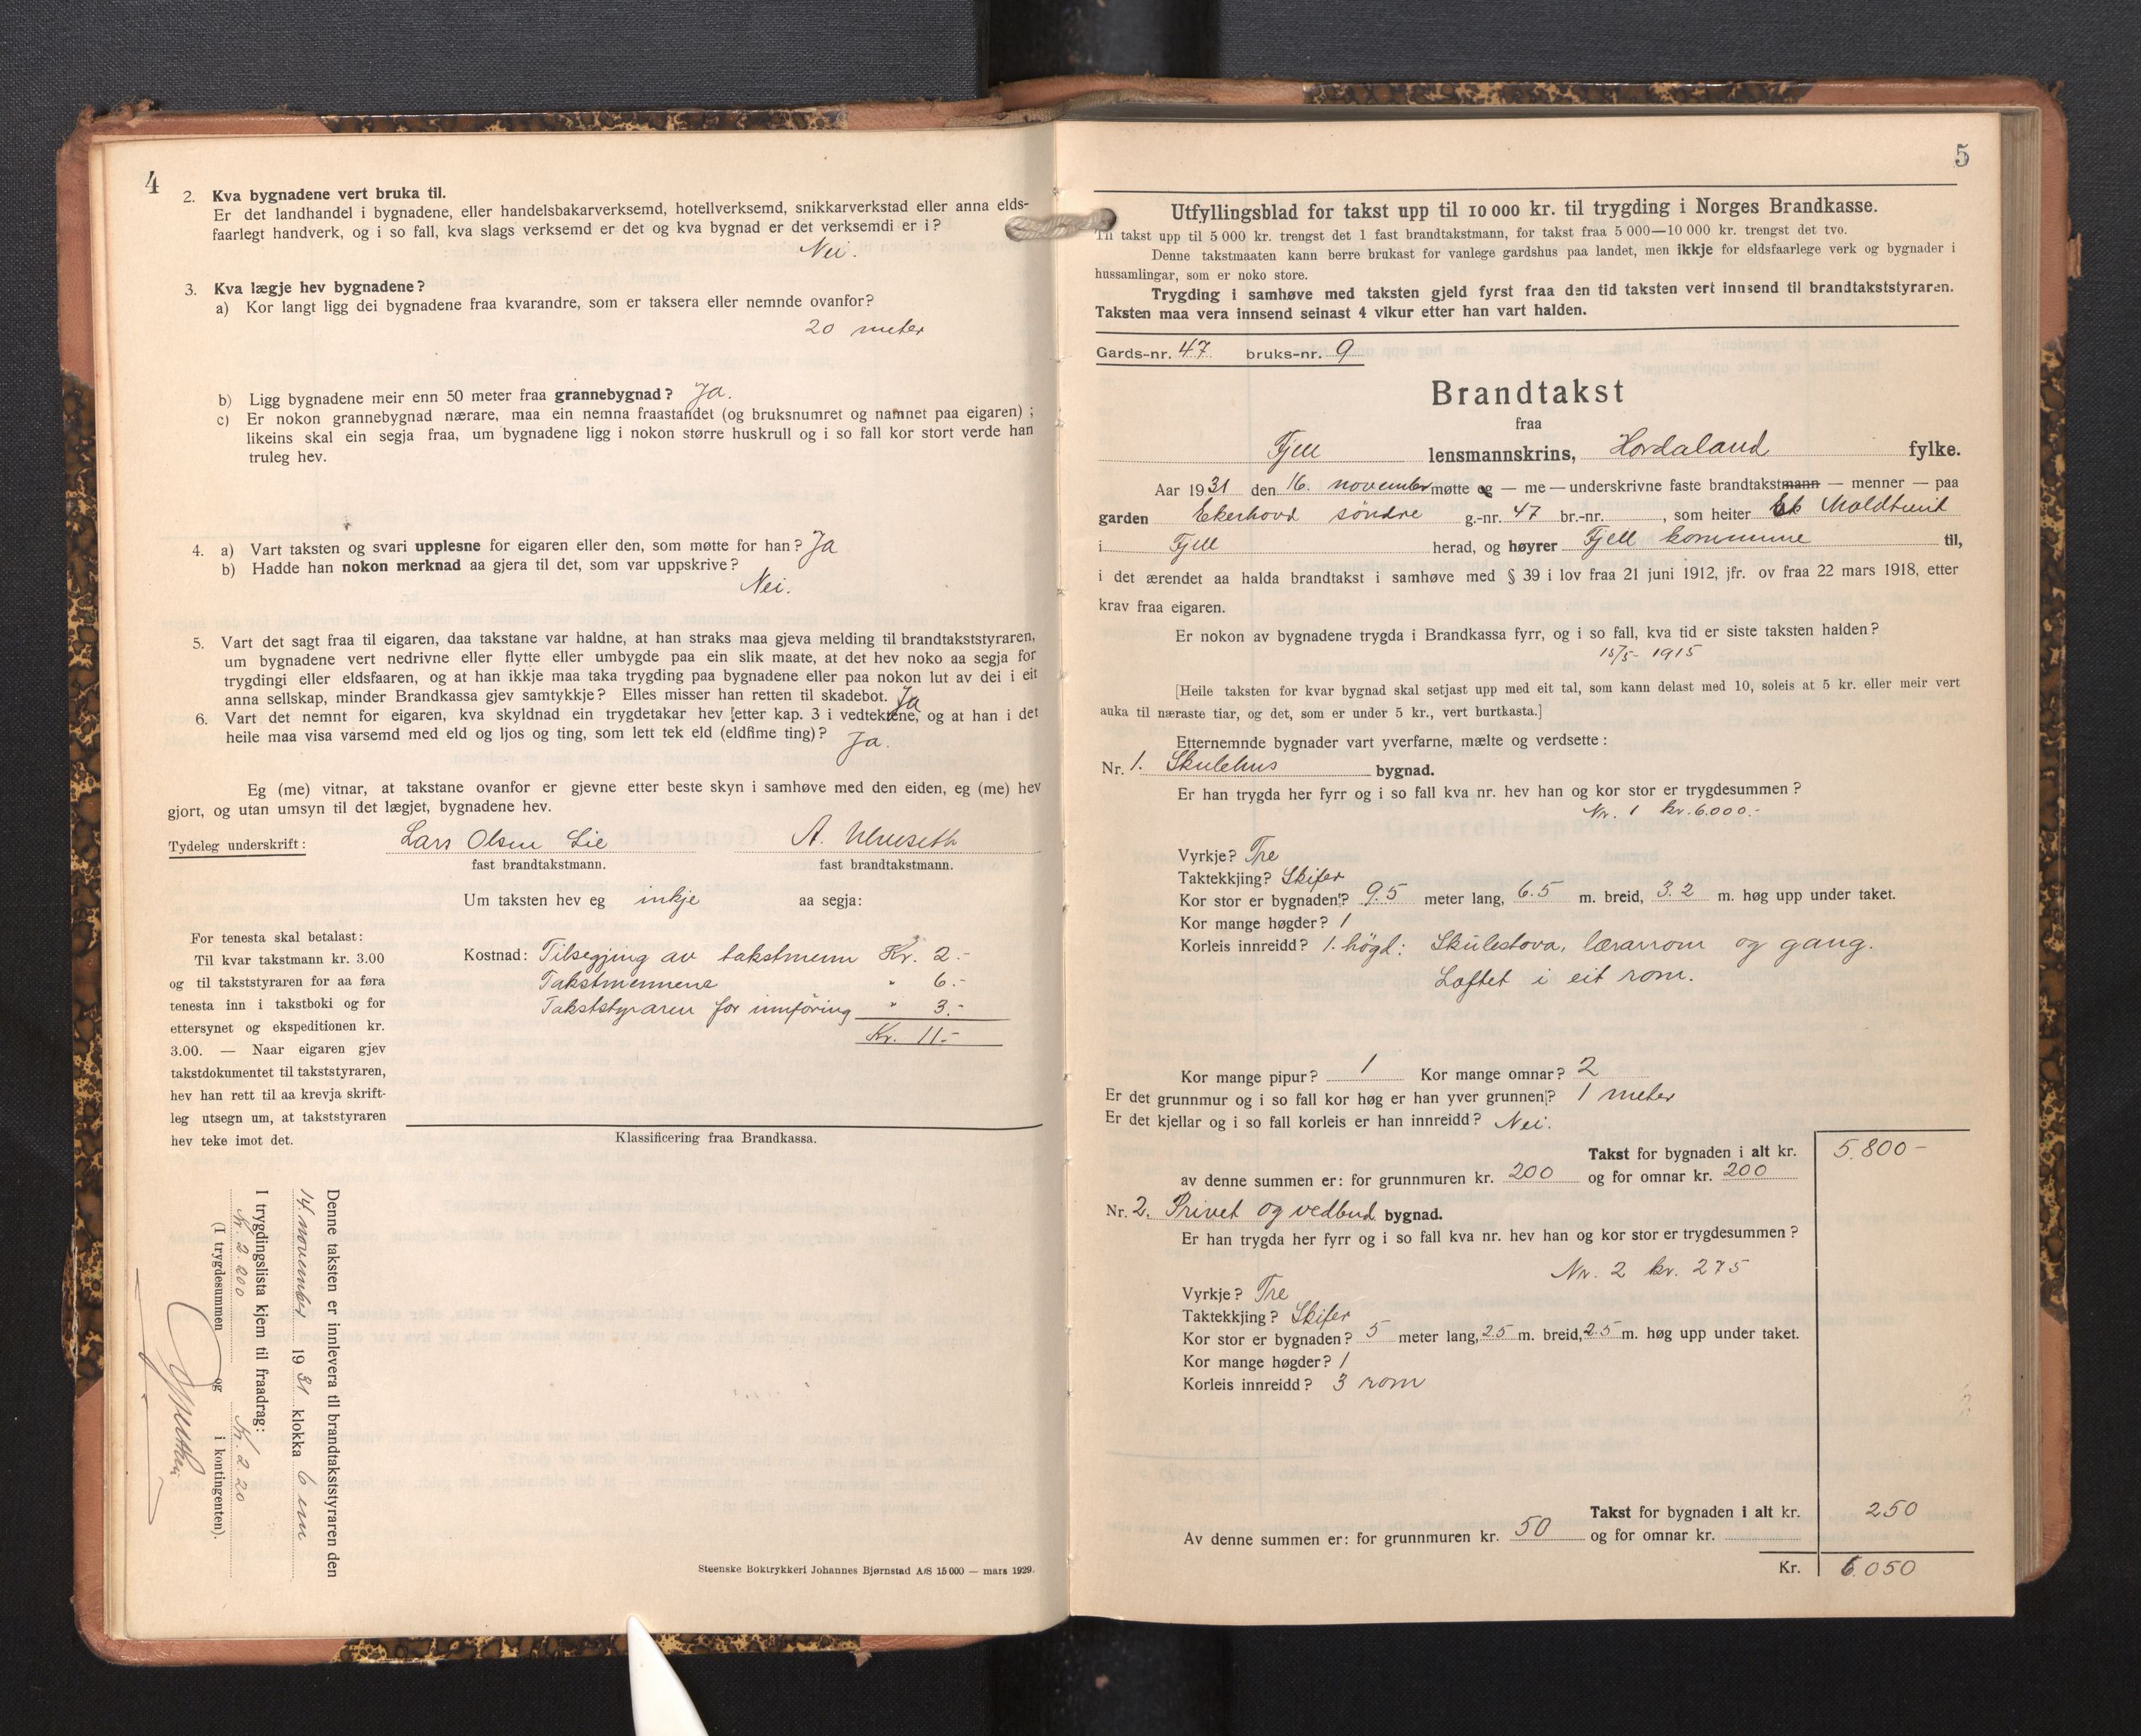 4
2. Kva bygnadene vert bruka til.
Er det landhandel i bygnadene, eller handelsbakarverksemd, hotellverksemd, snikkarverkstad eller anna elds-
faarlegt handverk, og i so fall, kva slags verksemd er det og kva bygnad er det verksemdi er i?
Nei.
3. Kva lægje hev bygnadene?
a) Kor langt ligg dei bygnadene fraa kvarandre, som er taksera eller nemnde ovanfor?
20 meter
b) Ligg bygnadene meir enn 50 meter fraa grannebygnad? Ja.
c) Er nokon grannebygnad nærare, maa ein nemna fraastandet (og bruksnumret og namnet paa eigaren) ;
likeins skal ein segja fraa, um bygnadene ligg i nokon større huskrull og i so fall kor stort verde han
truleg hev.
4. a) Vart taksten og svari upplesne for eigaren eller den, som møtte for han? Ja
b) Hadde han nokon merknad aa gjera til det, som var uppskrive?
Nei.
5. Vart det sagt fraa til eigaren, daa takstane var haldne, at han straks maa gjeva melding til brandtakststyraren,
um bygnadene vert nedrivne eller flytte eller umbygde paa ein slik maate, at det hev noko aa segja for
trygdingi eller eldsfaaren, og at han ikkje maa taka trygding paa bygnadene eller paa nokon lut av dei i eit
anna sellskap, minder Brandkassa gjev samtykkje? Elles misser han retten til skadebot. Ja
6. Vart det nemnt for eigaren, kva skyldnad ein trygdetakar hev [etter kap. 3 i vedtektene, og at han i det
heile maa visa varsemd med eld og ljos og ting, som lett tek eld (eldfime ting)? Ja.
Eg (me) vitnar, at takstane ovanfor er gjevne etter beste skyn i samhøve med den eiden, eg (me) hev
gjort, og utan umsyn til det lægjet, bygnadene hev.
Tydeleg underskrift: Lars Olsen Lie A. Ulveseth
fast brandtakstmann. fast brandtakstmann.
Um taksten hev eg inkje aa segja:
For tenesta skal betalast:
Til kvar takstmann kr. 3.00
og til takststyraren for aa føra
tenesta inn i takstboki og for
ettersynet og ekspeditionen kr.
3.00. — Naar eigaren gjev
takstdokumentet til takststyraren,
hev han rett til aa krevja skrift-
leg utsegn um, at takststyraren
hev teke imot det.
Kostnad: Tilsegjing av takstmenn Kr. 2.-
Takstmennene " 6.-
Takststyraren for innföring " 3.-
Kr. 11.-
Klassificering fraa Brandkassa.
Denne taksten er innlevera til brandtakststyraren den
14 november 1931 klokka 6 em
I trygdingslista kjem til fraadrag:
Kr. 2.200 Kr. 2.20
(I trygdesummen og i kontingenten).
Steenske Boktrykkeri Johannes Bjørnstad A/S 15 000 — mars 1929.
5
Utfyllingsblad for takst upp til 10 000 kr. til trygding i Norges Brandkasse.
Til takst upp til 5 000 kr. trengst det 1 fast brandtakstmann, for takst fraa 5 000—10 000 kr. trengst det tvo.
Denne takstmaaten kann berre brukast for vanlege gardshus paa landet, men ikkje for eldsfaarlege verk og bygnader i
hussamlingar, som er noko store.
Trygding i samhøve med taksten gjeld fyrst fraa den tid taksten vert innsend til brandtakststyraren.
Taksten maa vera innsend seinast 4 vikur etter han vart halden.
Gards-nr. 47 bruks-nr. 9
Brandtakst
fraa
Fjell lensmannskrins, Hordaland fylke.
Aar 1931 den 16. november møtte eg — me — underskrivne faste brandtakstmann — menner — paa
garden Ekerhovd söndre g.-nr. 47 br.-nr. , som heiter Moldtunit
i Fjell herad, og høyrer Fjell kommune til,
i det ærendet aa halda brandtakst i samhøve med § 39 i lov fraa 21 juni 1912, jfr. ov fraa 22 mars 1918, etter
krav fraa eigaren.
Er nokon av bygnadene trygda i Brandkassa fyrr, og i so fall, kva tid er siste taksten halden?
15/5- 1915
[Heile taksten for kvar bygnad skal setjast upp med eit tal, som kann delast med 10, soleis at 5 kr. eller meir vert
auka til næraste tiar, og det, som er under 5 kr., vert burtkasta.]
Etternemnde bygnader vart yverfarne, mælte og verdsette :
Nr. 1. Skulehus bygnad.
Er han trygda her fyrr og i so fall kva nr. hev han og kor stor er trygdesummen ?
Nr. 1 kr. 6.000.-
Vyrkje? Tre
Taktekkjing? Skifer
Kor stor er bygnaden? 9.5 meter lang, 6.5 m. breid, 3.2 m. høg upp under taket.
Kor mange høgder? 1
Korleis innreidd? 1. högd: Skulestova, lærarrom og gang.
Loftet i eit rom.
Kor mange pipur? 1 Kor mange omnar? 2
Er det grunnmur og i so fall kor høg er han yver grunnen? 1 meter
Er det kjellar og i so fall korleis er han innreidd? Nei.
Takst for bygnaden i alt kr. 5.800-
av denne summen er: for grunnmuren kr. 200 og for omnar kr. 200
Nr. 2. Privet og vedbud bygnad.
Er han trygda her fyrr og i so fall kva nr. hev han og kor stor er trygdesummen ?
Nr. 2 kr. 275
Vyrkje? Tre
Taktekkjing? Skifer
Kor stor er bygnaden? 5 meter lang, 2.5 m. breid, 2.5 m. høg upp under taket.
Kor mange høgder? 1
Korleis innreidd? 3 rom
Takst for bygnaden i alt kr. 250
Av denne summen er: for grunnmuren kr. 50 og for omnar kr.
Kr. 6.050